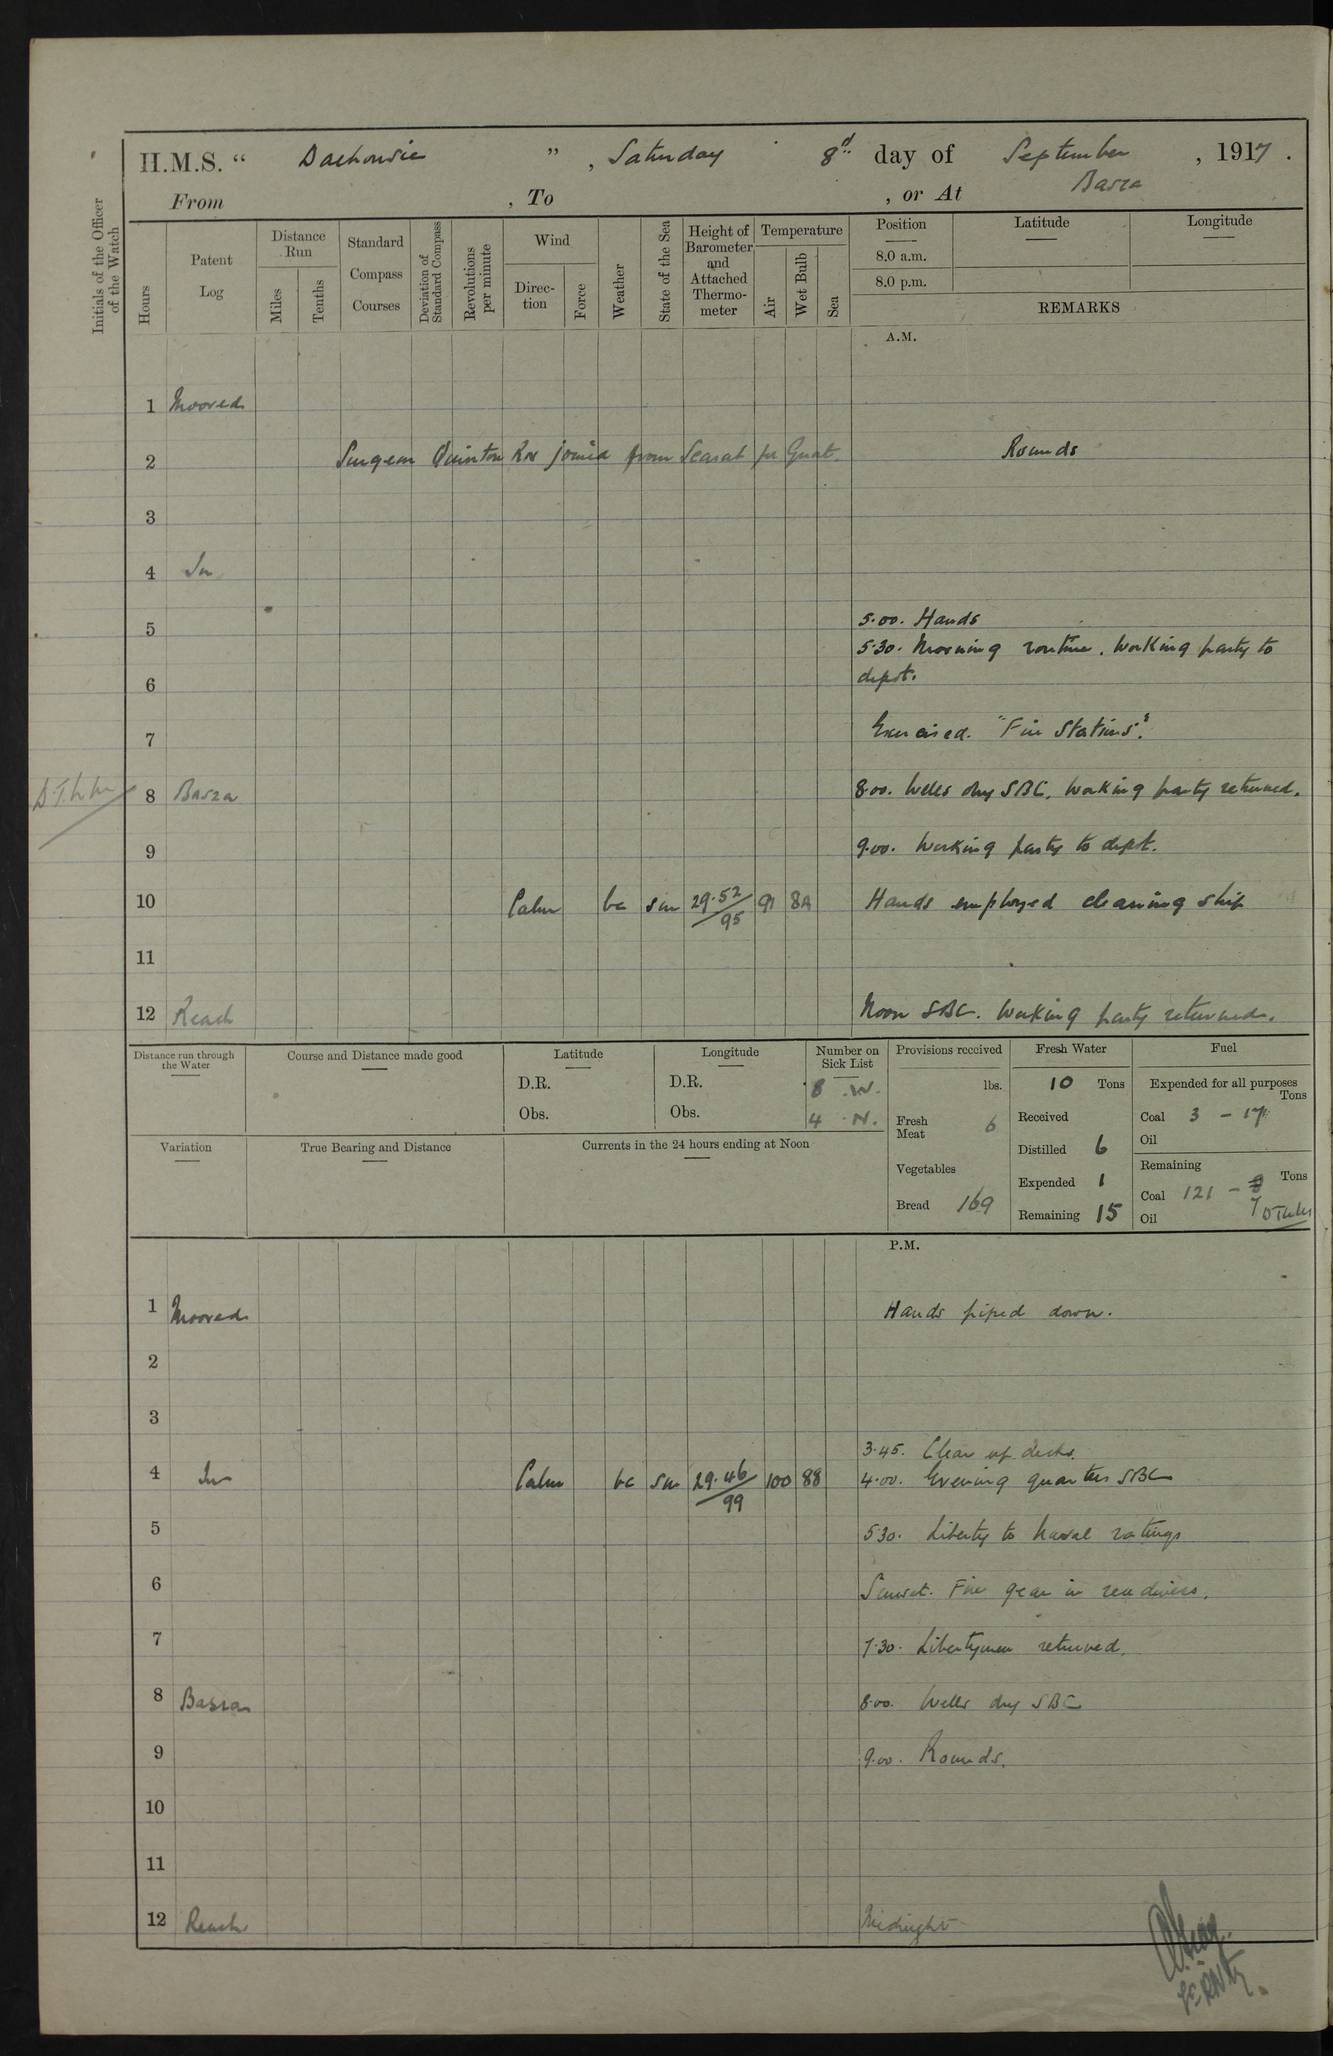 H.M.S. “ Dalhousie ” , Saturday 8d day of September , 1917 .
From , To , or At Basra
Initials of the Officer of the Watch
Hours
Patent Log
Distance Run
Miles
Tenths
Standard Compass Courses
Deviation of Standard Compass
Revolutions per minute
Wind
Direction
Force
Weather
State of the Sea
Height of Barometer and Attached Thermometer
Temperature
Air
Wet Bulb
Sea
Position Latitude Longitude
8.0 a.m.
8.0 p.m.
REMARKS
A.M.
1 Moored
2 Surgeon Quinton joined from Rounds
3
4 In
5 5.00. Hands
5.30. Morning routine. Working party to
6 depot.
7 Exercised. "Fire Stations".
8 Basra 8.00. Wells dry SBC. Working party returned.
9 9.00. Working party to depot.
10 Calm bc sm 29.52/95 91 82 Hands employed cleaning ship
11
12 Reach Noon SBC. Working party returned.
Distance run through the Water
Course and Distance made good
Latitude
D.R.
Obs.
Longitude
D.R.
Obs.
Number on Sick List
8 .W.
4 .N.
Provisions received
lbs.
Fresh Meat 6
Vegetables
Bread 169
Fresh Water
10 Tons
Received
Distilled 6
Expended 1
Remaining 15
Fuel
Expended for all purposes
Tons
Coal 3 - 17
Oil
Remaining
Tons
Coal 121 - 7
Oil
Variation
True Bearing and Distance
Currents in the 24 hours ending at Noon
P.M.
1 Moored Hands piped down.
2
3
3.45. Clear up decks.
4 In Calm bc sm 29.46/99 100 88 4.00. Evening quarters SBC
5 5.30. Liberty to Naval ratings
6 Sunset. Fire gear in readiness.
7 7.30. Libertymen returned.
8 Basra 8.00. Wells dry SBC
9 9.00. Rounds.
10
11
12 Reach Midnight